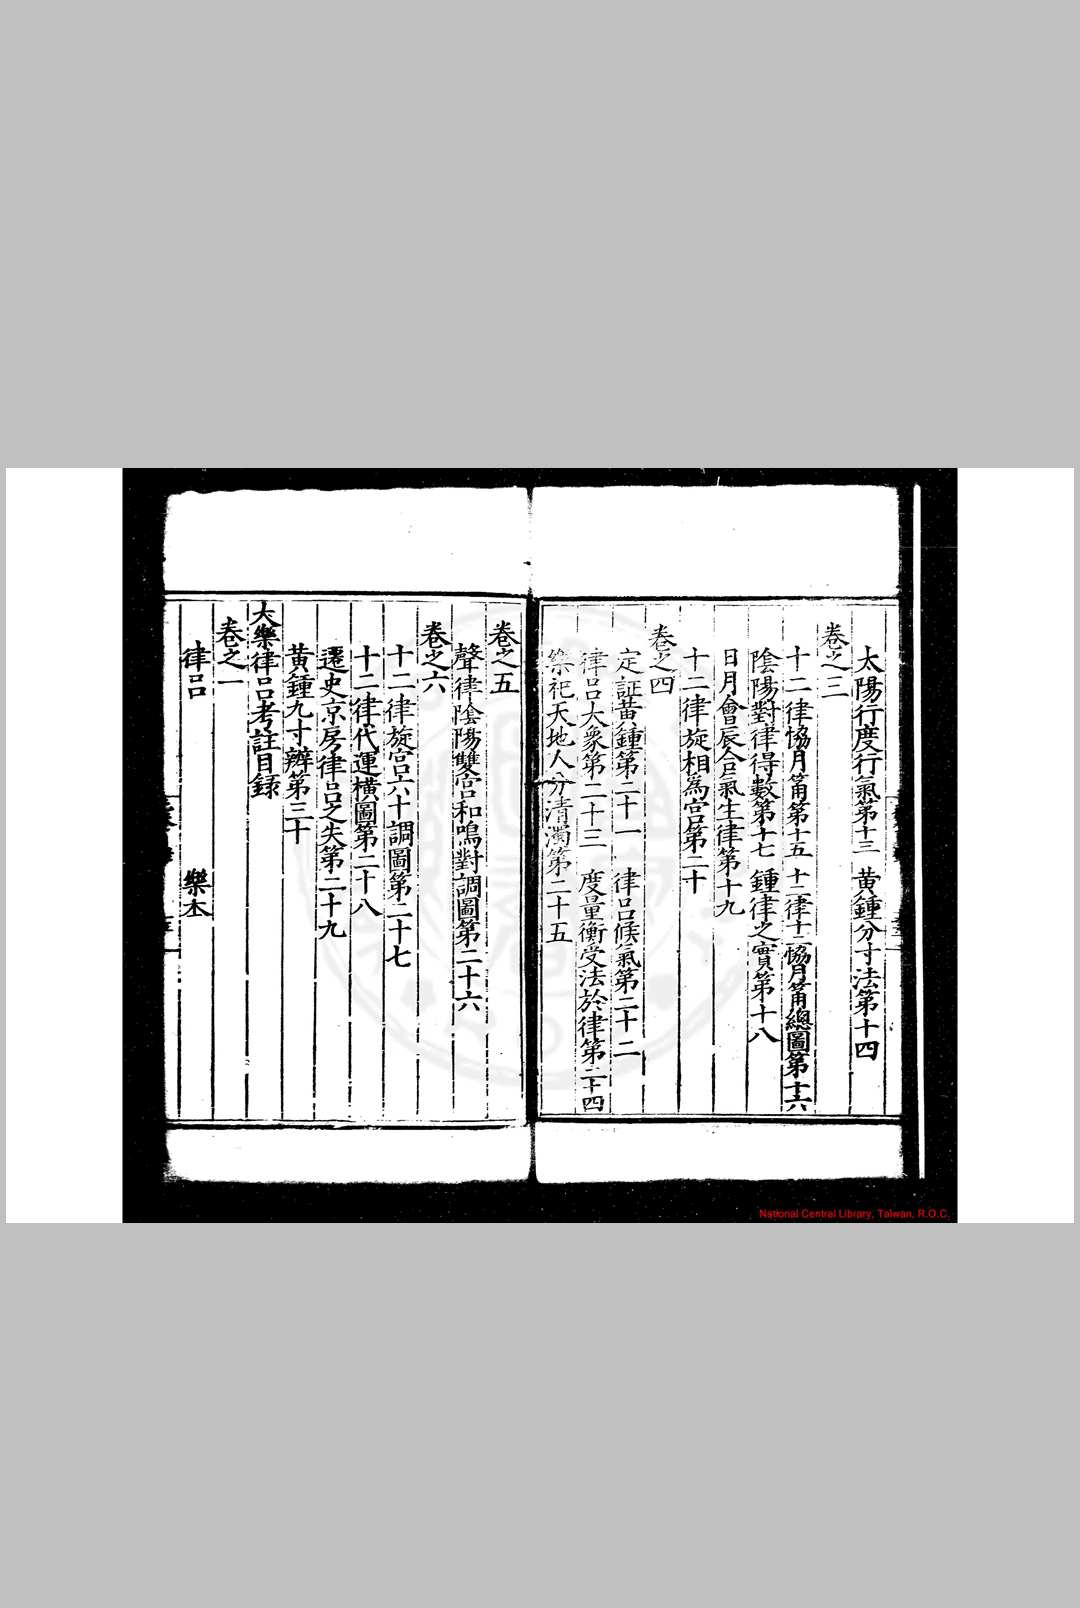 太陽行度行氣第十三　黃鍾分寸法第十四
卷之三
十二律恊月筩第十五　十二律十二恊月筩總圖第十六
陰陽對律得數第十七　鍾律之實第十八
日月會辰合氣生律第十九
十二律旋相爲宫第二十
卷之四
定証黃鍾第二十一　律吕候氣第二十二
律吕大衆第二十三　度量衡受法於律第二十四
樂祀天地人分清濁第二十五
卷之五
聲律陰陽雙宫和鳴對調圖第二十六
卷之六
十二律旋宫六十調圖第二十七
十二律代運橫圖第二十八
遷史京房律吕之失第二十九
黃鍾九寸辨第三十
大樂律吕考註目録
卷之一
律吕　樂本
National Central Library, Taiwan, R.O.C.